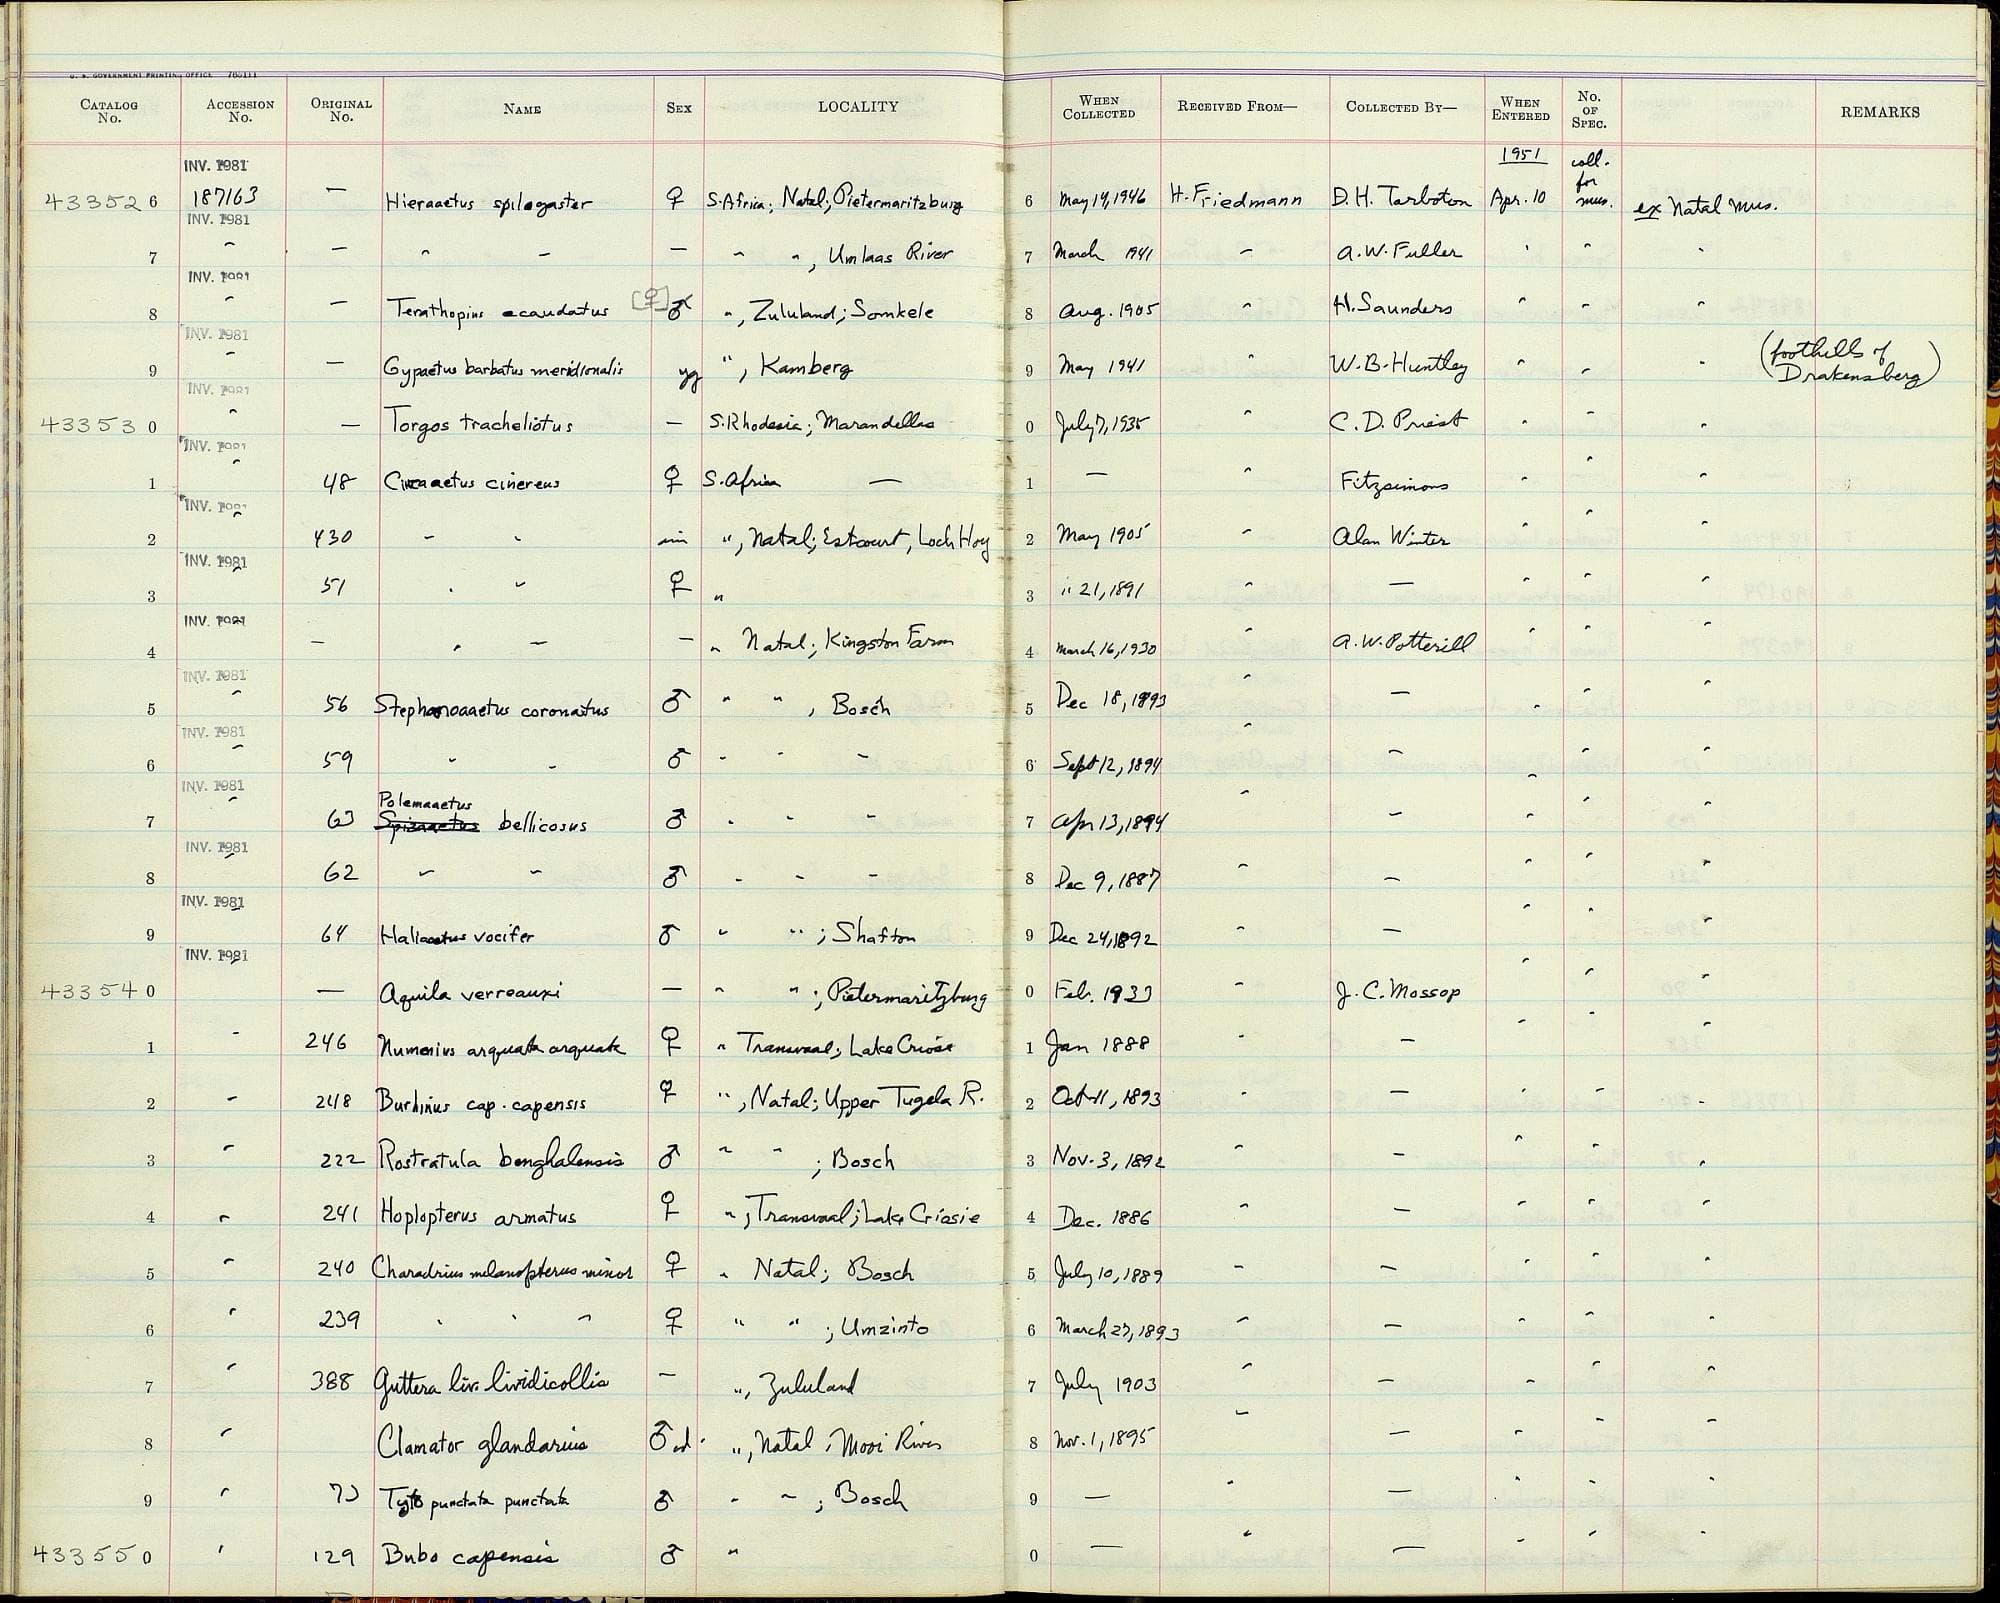 U. S. GOVERNMENT PRINTING OFFICE
CATALOG No. ACCESSION No. ORIGINAL No. NAME SEX LOCALITY WHEN COLLECTED RECEIVED FROM— COLLECTED BY— WHEN ENTERED No. OF SPEC. REMARKS
INV. 1981 1951 coll. for mus.
433526 187163 — Hieraaetus spilogaster ♀ S. Africa; Natal; Pietermaritzburg 6 May 19, 1946 H. Friedmann D.H. Tarboton Apr. 10 ex Natal Mus.
INV. 1981
7 " — " — — " ", Umlaas River 7 March 1941 " A.W. Fuller " " "
INV. 1981
8 " — Terathopius ecaudatus [♀] ♂ ", Zululand; Somkele 8 Aug. 1905 " H. Saunders " " "
INV. 1981
9 " — Gypaetus barbatus meridionalis yg ", Kamberg 9 May 1941 " W.B. Huntley " " " (foothills of Drakensberg)
INV. 1981
433530 " — Torgos tracheliotus — S. Rhodesia; Marandellas 0 July 7, 1935 " C.D. Priest " " "
INV. 1981
1 " 48 Circaaetus cinereus ♀ S. Africa — 1 — " Fitzsimons " " "
INV. 1981
2 " 430 " " im ", Natal; Estcourt, Loch Hoy 2 May 1905 " Alan Winter " " "
INV. 1981
3 " 51 " " ♀ " 3 ii 21, 1891 " — " " "
INV. 1981
4 " — " — — " Natal; Kingston Farm 4 March 16, 1930 " A.W. Potterill " " "
INV. 1981
5 " 56 Stephanoaaetus coronatus ♂ " ", Bosch 5 Dec 18, 1893 " — " " "
INV. 1981
6 " 59 " " ♂ " " " 6 Sept 12, 1894 " — " " "
INV. 1981
Polemaaetus
7 " 63 Spizaaetus bellicosus ♂ " " " 7 Apr 13, 1894 " — " " "
INV. 1981
8 " 62 " " ♂ " " " 8 Dec 9, 1887 " — " " "
INV. 1981
9 " 64 Haliaaetus vocifer ♂ " "; Shafton 9 Dec 24, 1892 " — " " "
INV. 1981
433540 " — Aquila verreauxi — " "; Pietermaritzburg 0 Feb. 1933 " J.C. Mossop " " "
1 " 246 Numenius arquata arquata ♀ " Transvaal; Lake Crissie 1 Jan 1888 " — " " "
2 " 248 Burhinus cap. capensis ♀ ", Natal; Upper Tugela R. 2 Oct 11, 1893 " — " " "
3 " 222 Rostratula benghalensis ♂ " "; Bosch 3 Nov. 3, 1892 " — " " "
4 " 241 Hoplopterus armatus ♀ "; Transvaal; Lake Crissie 4 Dec. 1886 " — " " "
5 " 240 Charadrius melanopterus minor ♀ " Natal; Bosch 5 July 10, 1889 " — " " "
6 " 239 " " " ♀ " "; Umzinto 6 March 27, 1893 " — " " "
7 " 388 Guttera liv. lividicollis — ", Zululand 7 July 1903 " — " " "
8 " Clamator glandarius ♂ ad. ", Natal, Mooi River 8 Nov. 1, 1895 " — " " "
9 " 73 Tyto punctata punctata ♂ " "; Bosch 9 — " — " " "
433550 " 129 Bubo capensis ♂ " 0 — " — " " "